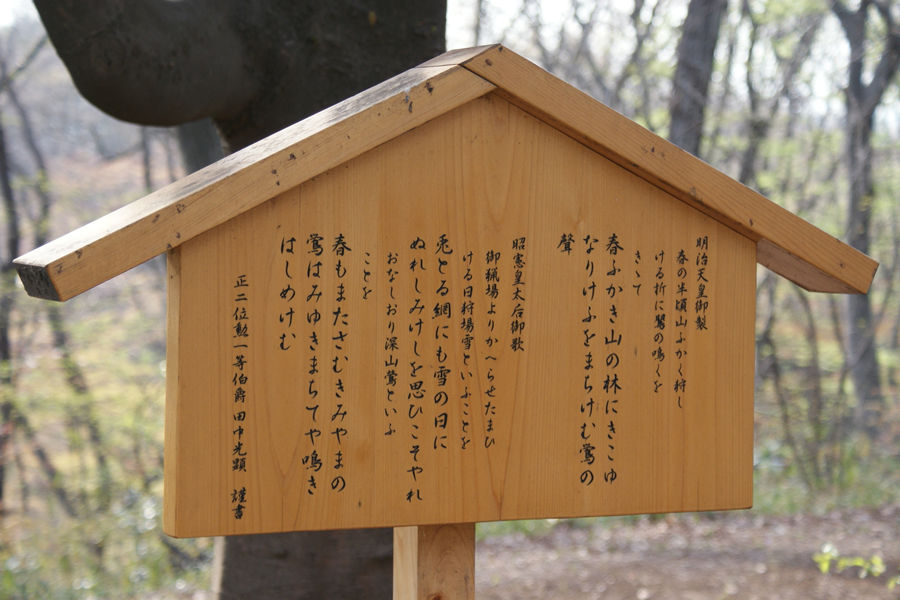 明治天皇御製
春の半頃山ふかく狩し
ける折に鶯の鳴くを
きゝて
春ふかき山の林にきこゆ
なりけふをまちけむ鶯の
聲
昭憲皇太后御歌
御猟場よりかへらせたまひ
ける日狩場雪といふことを
兎とる網にも雪の日に
ぬれしみけしを思ひこそやれ
おなしおり深山鶯といふ
ことを
春もまたさむきみやまの
鶯はみゆきまちてや鳴き
はしめけむ
正二位勲一等伯爵田中光顕 謹書